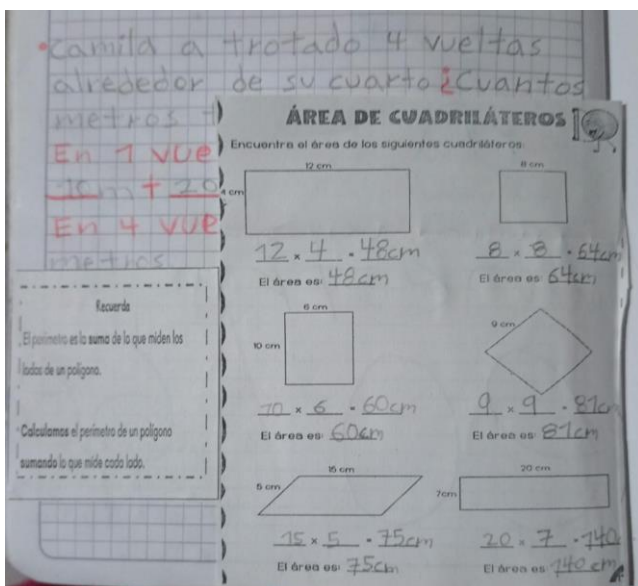 •camila a trotado 4 vueltas
alrededor de su cuarto ¿Cuantos
metros
En 1 vue
10m + 20
En 4 vue
metros
Recuerda
El perímetro es la suma de lo que miden los
lados de un polígono.
Calculamos el perímetro de un polígono
sumando lo que mide cada lado.
ÁREA DE CUADRILÁTEROS
Encuentra el área de los siguientes cuadriláteros:
12 cm
4 cm
12 × 4 = 48cm
El área es: 48cm
8 cm
8 × 8 = 64cm
El área es: 64cm
6 cm
10 cm
10 × 6 = 60cm
El área es: 60cm
9 cm
9 × 9 = 81c
El área es: 81cm
15 cm
5 cm
15 × 5 = 75cm
El área es: 75cm
20 cm
7cm
20 × 7 = 140
El área es: 140 cm